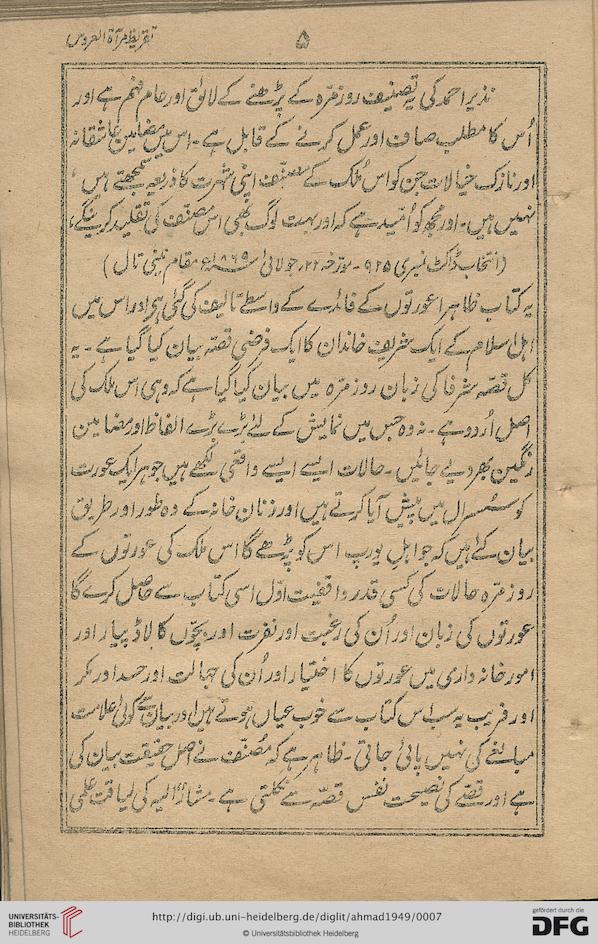 تقریظ مرآۃ العروس
۵
نذیر احمد کی یہ تصنیف روزمرّہ کے پڑھنے کے لائق اور عام فہم ہے اور
اُس کا مطلب صاف اور عمل کرنے کے قابل ہے۔ اس میں مضامین عاشقانہ
اور نازک خیالات جن کو اس مُلک کے مصنّف اپنی شہرت کا ذریعہ سمجھتے ہیں،
نہیں ہیں۔ اور مجھ کو اُمّید ہے کہ اور بہت لوگ بھی اس مصنّف کی تقلید کرینگے،
(انتخاب ڈاکٹ نمبری ۹۲۵۔ مورخہ ۲۲، جولائی ۱۸۶۹ء مقام نینی تال)
یہ کتاب ظاہرا عورتوں کے فائدے کے واسطے تالیف کی گئی ہی اور اس میں
اہل اسلام کے ایک شریف خاندان کا ایک فرضی قصّہ بیان کیا گیا ہے۔ یہ
کل قصّہ شرفا کی زبان روزمرّہ میں بیان کیا گیا ہے کہ وہی اس ملک کی
اصل اُردو ہے۔ نہ وہ جس میں نمایش کے لئے بڑے بڑے الفاظ اور مضامین
رنگین بھر دیے جائیں۔ حالات ایسے ایسے واقعی لکھے ہیں جو ہر ایک عورت
کو سُسرال میں پیش آیا کرتے ہیں اور زنان خانہ کے وہ طور اور طریق
بیان کئے ہیں کہ جو اہل یورپ اس کو پڑھے گا اس ملک کی عورتوں کے
روزمرّہ حالات کی کسی قدر واقفیت اوّل اسی کتاب سے حاصل کرے گا
عورتوں کی زبان اور اُن کی رغبت اور نفرت اور بچّوں کا لاڈ پیار اور
امور خانہ داری میں عورتوں کا اختیار اور اُن کی جہالت اور حسد اور مکر
اور فریب یہ سب اس کتاب سے خوب عیاں ہوتے ہیں اور بیان سے کوئی علامت
مبالغے کی نہیں پائی جاتی۔ ظاہر ہے کہ مُصنّف نے اصل حقیقت بیان کی
ہے اور قصّے کی نصیحت نفس قصّہ سے نکلتی ہے۔ مشارٌ الیہ کی لیاقت علمی
UNIVERSITÄTS-
BIBLIOTHEK
HEIDELBERG
http://digi.ub.uni-heidelberg.de/diglit/ahmad1949/0007
© Universitätsbibliothek Heidelberg
gefördert durch die
DFG